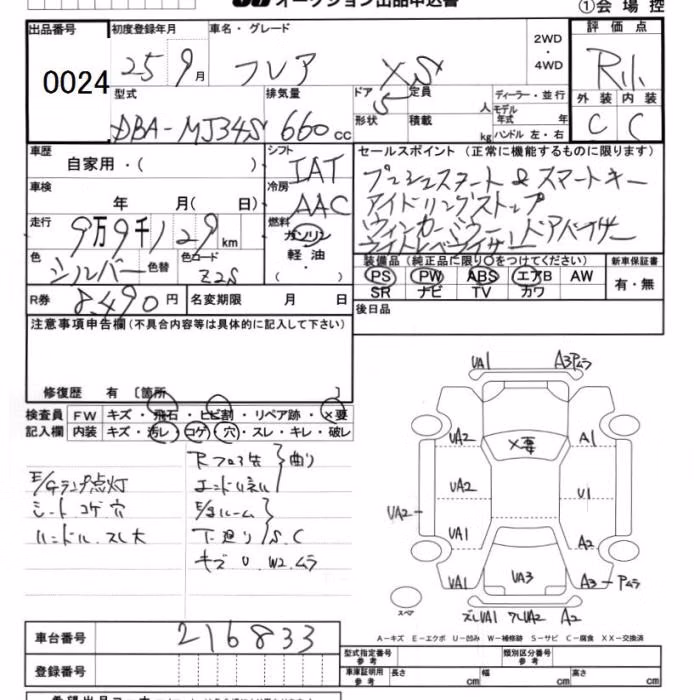 オークション出品申込書
①会場控
出品番号 初度登録年月 車名・グレード 2WD・4WD 評価点
0024 25 9月 フレア XS R小
型式 排気量 ドア 定員 人 ディーラー・並行 外装 内装
DBA-MJ34S 660cc 5 形状 積載 kg モデル年式 年 ハンドル 左・右 C C
車歴 自家用・( ) シフト IAT セールスポイント (正常に機能するものに限ります)
車検 年 月( 日) 冷房 AAC プッシュスタート & スマートキー
アイドリングストップ
走行 9万9千129km 燃料 ガソリン 軽油・( ) ウィンカーミラー ドアバイザー
色 シルバー 色替 色コード Z2S
装備品 (純正品に限り○をつけてください) 新車保証書
PS PW ABS エアB AW 有・無
SR ナビ TV カワ
R券 8,490円 名変期限 月 日 後日品
注意事項申告欄(不具合内容等は具体的に記入して下さい)
修復歴 有 〔箇所 〕
検査員 FW キズ・飛石・ヒビ割・リペア跡・×要
記入欄 内装 キズ・汚レ・コゲ・穴・スレ・キレ・破レ
Rフロア先 曲り
E/Gランプ点灯
シート コゲ 穴
ハンドル スレ大
下廻り S.C
キズ U W2 ムラ
UA1 A3Pムラ
UA2 ×要 A1
UA2 U1
UA2
UA1 A2
UA1 UA3 A3 Pムラ
スペア UA1 UA2 A2
A-キズ E-エクボ U-凹み W-補修跡 S-サビ C-腐食 XX-交換済
車台番号 216833
型式指定番号 参考 類別区分番号 参考
登録番号 車庫証明用 参考 長さ cm 幅 cm 高さ cm